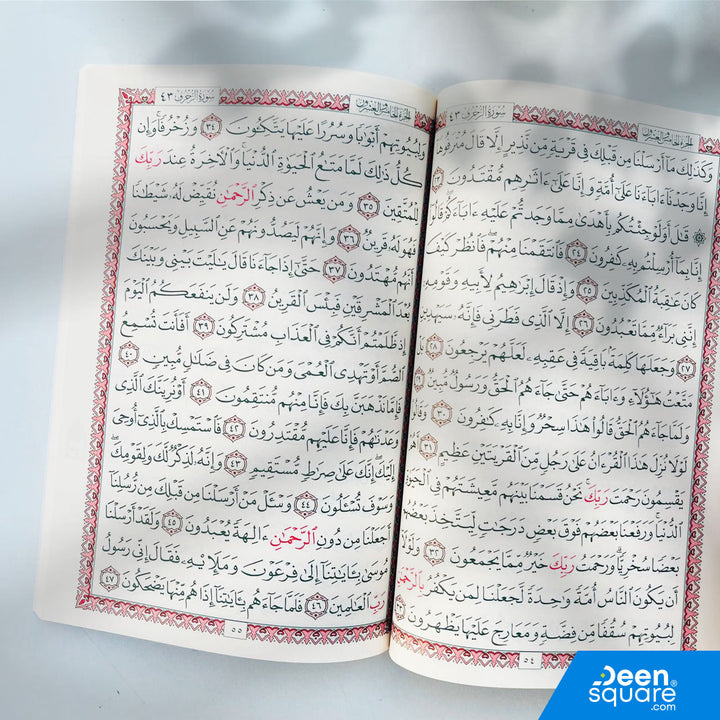 الجزء الخامس والعشرون
سورة الزخرف ٤٣
وَكَذَٰلِكَ مَآ أَرْسَلْنَا مِن قَبْلِكَ فِى قَرْيَةٍ مِّن نَّذِيرٍ إِلَّا قَالَ مُتْرَفُوهَآ
إِنَّا وَجَدْنَآ ءَابَآءَنَا عَلَىٰٓ أُمَّةٍ وَإِنَّا عَلَىٰٓ ءَاثَٰرِهِم مُّقْتَدُونَ ٢٣
۞ قَٰلَ أَوَلَوْ جِئْتُكُم بِأَهْدَىٰ مِمَّا وَجَدتُّمْ عَلَيْهِ ءَابَآءَكُمْ قَالُوٓا۟
إِنَّا بِمَآ أُرْسِلْتُم بِهِۦ كَٰفِرُونَ ٢٤ فَٱنتَقَمْنَا مِنْهُمْ فَٱنظُرْ كَيْفَ
كَانَ عَٰقِبَةُ ٱلْمُكَذِّبِينَ ٢٥ وَإِذْ قَالَ إِبْرَٰهِيمُ لِأَبِيهِ وَقَوْمِهِۦٓ
إِنَّنِى بَرَآءٌ مِّمَّا تَعْبُدُونَ ٢٦ إِلَّا ٱلَّذِى فَطَرَنِى فَإِنَّهُۥ سَيَهْدِينِ
٢٧ وَجَعَلَهَا كَلِمَةًۢ بَاقِيَةً فِى عَقِبِهِۦ لَعَلَّهُمْ يَرْجِعُونَ ٢٨ بَلْ
مَتَّعْتُ هَٰٓؤُلَآءِ وَءَابَآءَهُمْ حَتَّىٰ جَآءَهُمُ ٱلْحَقُّ وَرَسُولٌ مُّبِينٌ ٢٩
وَلَمَّا جَآءَهُمُ ٱلْحَقُّ قَالُوا۟ هَٰذَا سِحْرٌ وَإِنَّا بِهِۦ كَٰفِرُونَ ٣٠ وَقَالُوا۟
لَوْلَا نُزِّلَ هَٰذَا ٱلْقُرْءَانُ عَلَىٰ رَجُلٍ مِّنَ ٱلْقَرْيَتَيْنِ عَظِيمٍ ٣١ أَهُمْ
يَقْسِمُونَ رَحْمَتَ رَبِّكَ نَحْنُ قَسَمْنَا بَيْنَهُم مَّعِيشَتَهُمْ فِى ٱلْحَيَوٰةِ
ٱلدُّنْيَا وَرَفَعْنَا بَعْضَهُمْ فَوْقَ بَعْضٍ دَرَجَٰتٍ لِّيَتَّخِذَ بَعْضُهُم
بَعْضًا سُخْرِيًّا وَرَحْمَتُ رَبِّكَ خَيْرٌ مِّمَّا يَجْمَعُونَ ٣٢ وَلَوْلَآ
أَن يَكُونَ ٱلنَّاسُ أُمَّةً وَٰحِدَةً لَّجَعَلْنَا لِمَن يَكْفُرُ بِٱلرَّحْمَٰنِ
لِبُيُوتِهِمْ سُقُفًا مِّن فِضَّةٍ وَمَعَارِجَ عَلَيْهَا يَظْهَرُونَ ٣٣
٥٤
الجزء الخامس والعشرون
سورة الزخرف ٤٣
وَلِبُيُوتِهِمْ أَبْوَٰبًا وَسُرُرًا عَلَيْهَا يَتَّكِـُٔونَ ٣٤ وَزُخْرُفًا وَإِن
كُلُّ ذَٰلِكَ لَمَّا مَتَٰعُ ٱلْحَيَوٰةِ ٱلدُّنْيَا وَٱلْءَاخِرَةُ عِندَ رَبِّكَ
لِلْمُتَّقِينَ ٣٥ وَمَن يَعْشُ عَن ذِكْرِ ٱلرَّحْمَٰنِ نُقَيِّضْ لَهُۥ شَيْطَٰنًا
فَهُوَ لَهُۥ قَرِينٌ ٣٦ وَإِنَّهُمْ لَيَصُدُّونَهُمْ عَنِ ٱلسَّبِيلِ وَيَحْسَبُونَ
أَنَّهُم مُّهْتَدُونَ ٣٧ حَتَّىٰٓ إِذَا جَآءَنَا قَالَ يَٰلَيْتَ بَيْنِى وَبَيْنَكَ
بُعْدَ ٱلْمَشْرِقَيْنِ فَبِئْسَ ٱلْقَرِينُ ٣٨ وَلَن يَنفَعَكُمُ ٱلْيَوْمَ
إِذ ظَّلَمْتُمْ أَنَّكُمْ فِى ٱلْعَذَابِ مُشْتَرِكُونَ ٣٩ أَفَأَنتَ تُسْمِعُ
ٱلصُّمَّ أَوْ تَهْدِى ٱلْعُمْىَ وَمَن كَانَ فِى ضَلَٰلٍ مُّبِينٍ ٤٠
فَإِمَّا نَذْهَبَنَّ بِكَ فَإِنَّا مِنْهُم مُّنتَقِمُونَ ٤١ أَوْ نُرِيَنَّكَ ٱلَّذِى
وَعَدْنَٰهُمْ فَإِنَّا عَلَيْهِم مُّقْتَدِرُونَ ٤٢ فَٱسْتَمْسِكْ بِٱلَّذِىٓ أُوحِىَ
إِلَيْكَ إِنَّكَ عَلَىٰ صِرَٰطٍ مُّسْتَقِيمٍ ٤٣ وَإِنَّهُۥ لَذِكْرٌ لَّكَ وَلِقَوْمِكَ
وَسَوْفَ تُسْـَٔلُونَ ٤٤ وَسْـَٔلْ مَنْ أَرْسَلْنَا مِن قَبْلِكَ مِن رُّسُلِنَآ
أَجَعَلْنَا مِن دُونِ ٱلرَّحْمَٰنِ ءَالِهَةً يُعْبَدُونَ ٤٥ وَلَقَدْ أَرْسَلْنَا
مُوسَىٰ بِـَٔايَٰتِنَآ إِلَىٰ فِرْعَوْنَ وَمَلَإِي۟هِۦ فَقَالَ إِنِّى رَسُولُ
رَبِّ ٱلْعَٰلَمِينَ ٤٦ فَلَمَّا جَآءَهُم بِـَٔايَٰتِنَآ إِذَا هُم مِّنْهَا يَضْحَكُونَ ٤٧
٥٥
Deen
square®
.com